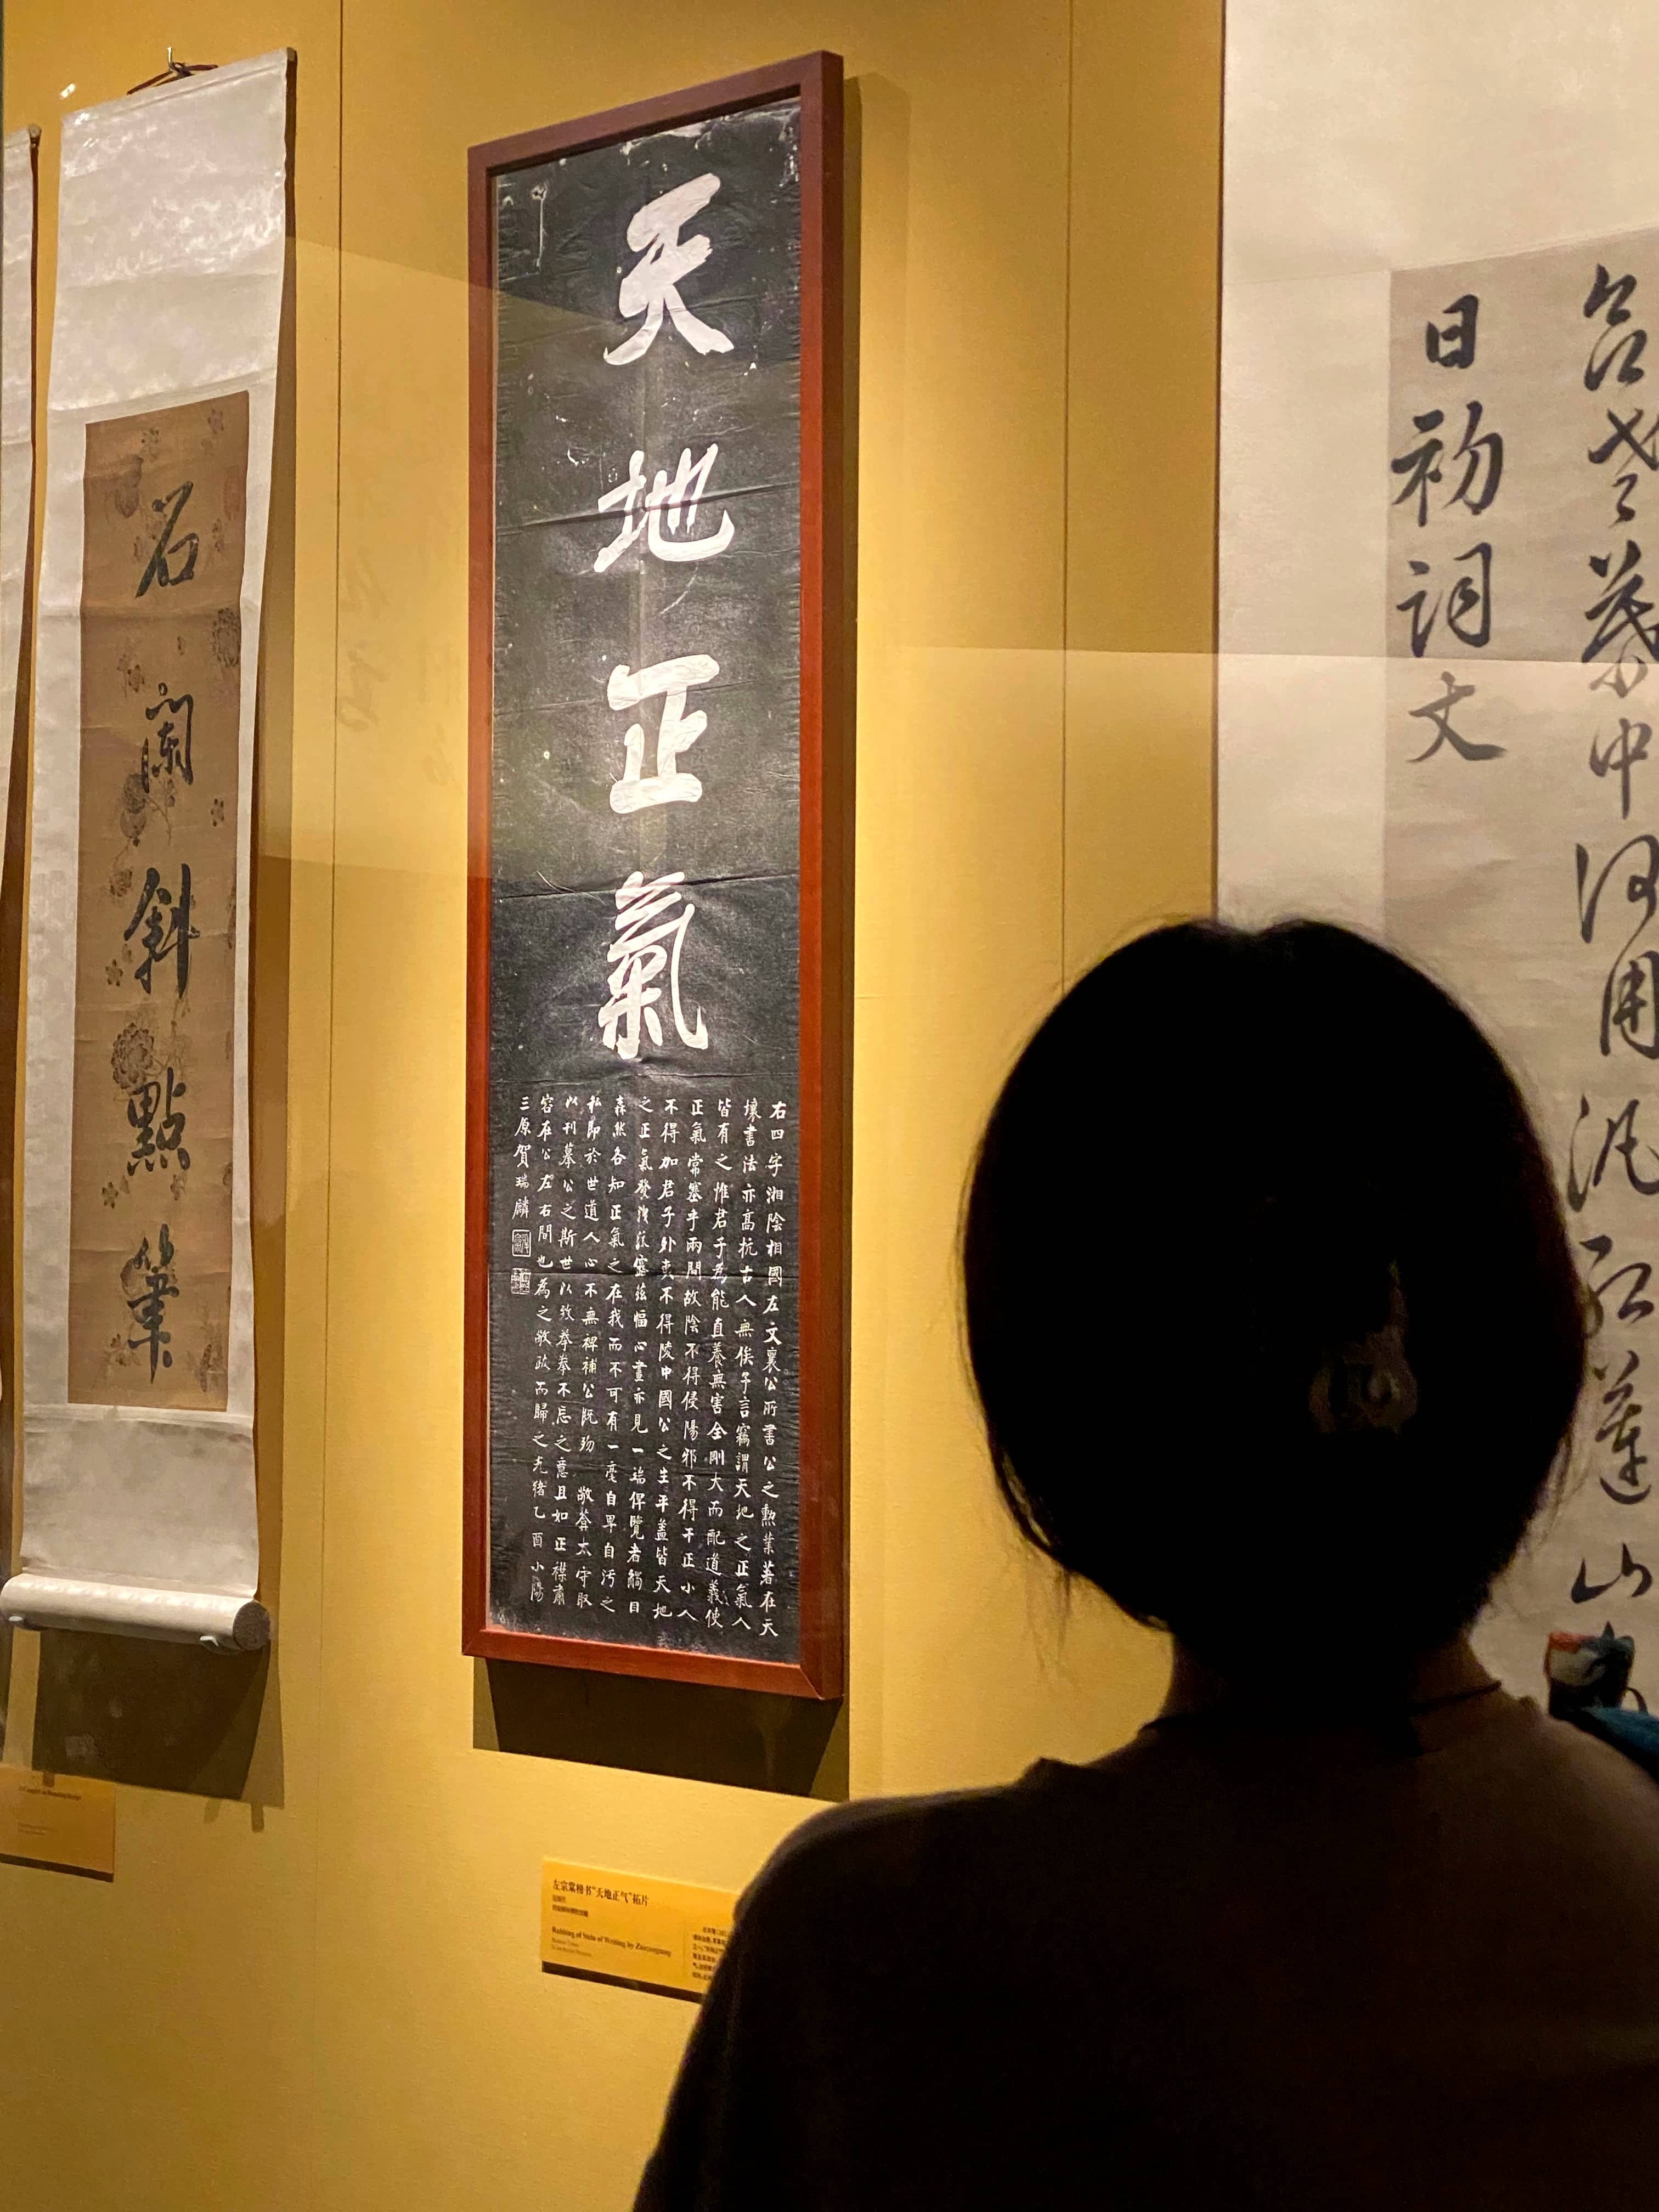 天地正氣
右四字湘陰相國左文襄公所書公之勲業著在天
壤書法亦高抗古人無俟予言竊謂天地之正氣人
皆有之惟君子為能直養無害全剛大而配道義使
正氣常塞乎兩間故陰不得侵陽邪不得干正小人
不得加君子外夷不得陵中國公之生平蓋皆天地
之正氣發洩流露茲幅心畫亦見一端俾覽者觸目
森然各知正氣之在我而不可有一毫自卑自汚之
私即於世道人心不無裨補公既歿敬菴太守取
以刊摹公之斯世以致拳拳不忘之意且如正襟肅
容在公左右間也為之敬跋而歸之光緒乙酉小陽
三原賀瑞麟
石闌斜點筆
日初詞文
中河用汎紅蓮山
左宗棠榜书“天地正气”拓片
Rubbing of Stele of Writing by Zuozongtang